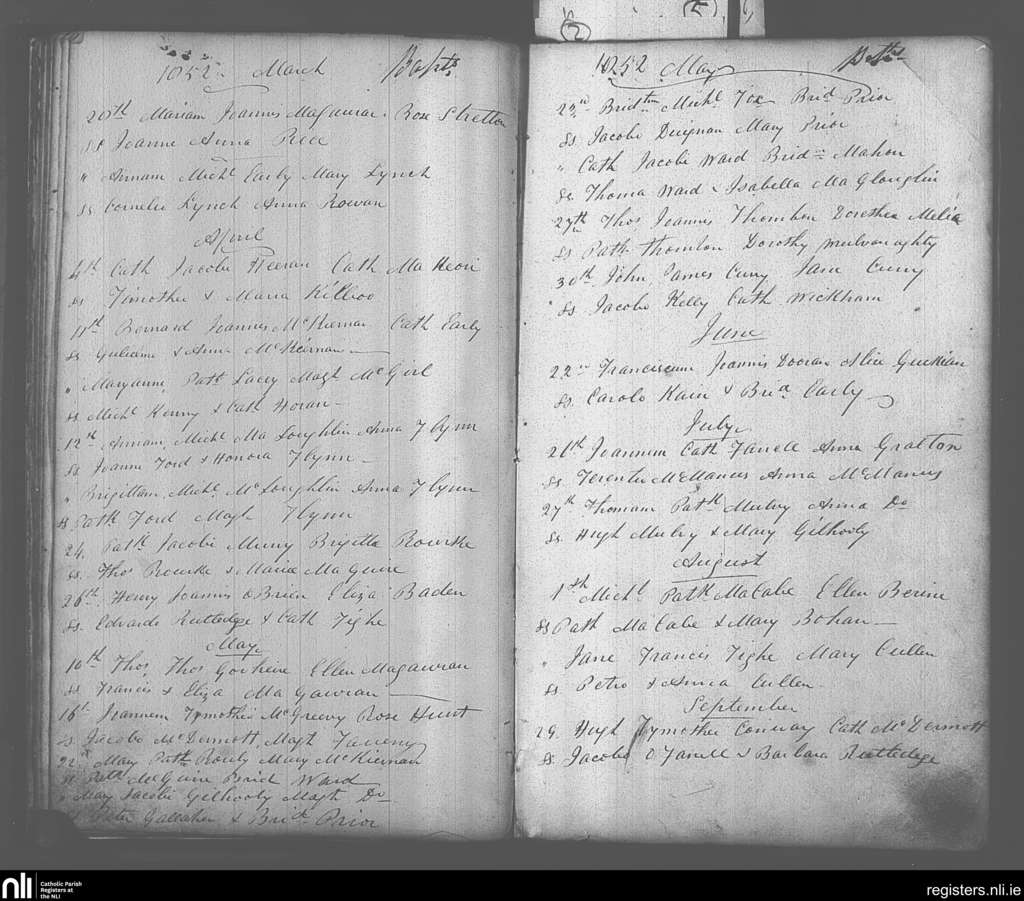 1852 March Bapts
20th Mariam Joannis Magauran Rose Stretton
ss Joanne Anna Rice
" Annam Michl Early Mary Lynch
ss Cornelio Lynch Anna Rowan
April
4th Cath Jacobi Heeran Cath Ma Keon
ss Timothea & Maria Killroo
11th Bernard Joannis McKiernan Cath Early
ss Guliamo & Anna McKiernan
" Maryanne Patk Lacey Magt McGirl
ss Michl Kenny & Cath Horan
12th Annam Michl Ma Loughlin Anna Flynn
ss Joanne Ford & Honora Flynn
" Brigittam Michl McLoughlin Anna Flynn
ss Patk Ford Magt Flynn
24. Patk Jacobi Murry Brigitta Rourke
ss. Thos Rourke & Maria Maguire
26th Henry Joannis OBrien Eliza Baden
ss. Edvardo Rutledge & Cath Tighe
May
10th Thos Thos Ellen Magauran
ss Francis & Eliza Ma Gauran
16th Joannem Tymothei McGreevy Rose Hunt
ss Jacobo McDermott, Magt
22d Mary Patk Roudy Mary McKiernan
ss Patk McGuire Brid Ward
" Mary Jacobi Gilhooly Magt Do
ss Peter Gallaher & Brid Prior
1852 May Bapts
23rd Michl Fox Brid Prior
ss Jacobo Duignan Mary Prior
" Cath Jacobi Ward Brid Mahon
ss. Thoma Ward & Isabella Ma Gloughlin
27th Thos Joannis Thornton Dorothea Melia
ss Patk Thornton Dorothy
30th John James Curry Jane Curry
ss Jacobo Kelly Cath Wickham
June
22nd Franciscum Joannis Dooran Alice Guckian
ss. Carolo Kain & Brid Early
July
21th Joannem Cath Farrell Anna Gratton
ss Terentio McManus Anna McManus
27th Thomam Patk Mulvy Anna Do
ss. Hugh Mulvy & Mary Gilhooly
August
1sh Michl Patk MaCabe Ellen
ss Path MaCabe & Mary Bohan
" Jane Francis Tighe Mary Cullen
ss Petro & Anna Cullen
September
29. Hugh Tymothei Conway Cath McDermott
ss. Jacobo OFarrell & Barbara Rutledge
nli
Catholic Parish
Registers at
the NLI
registers.nli.ie